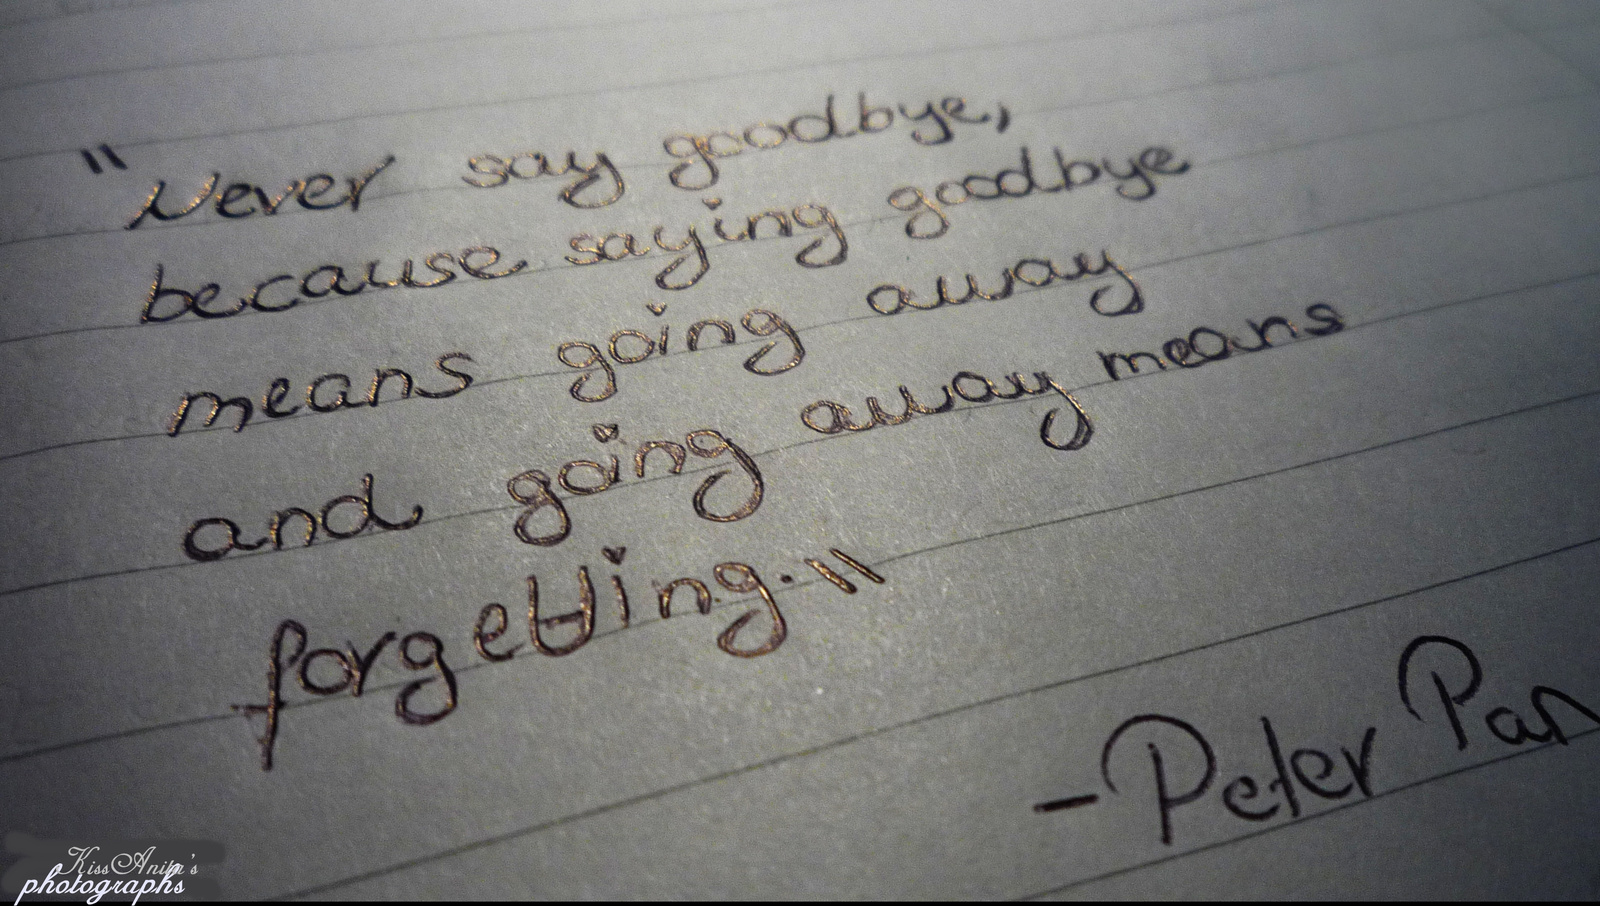 "Never say goodbye,
because saying goodbye
means going away
and going away means
forgetting."
-Peter Pan
KissAnita's
photographs